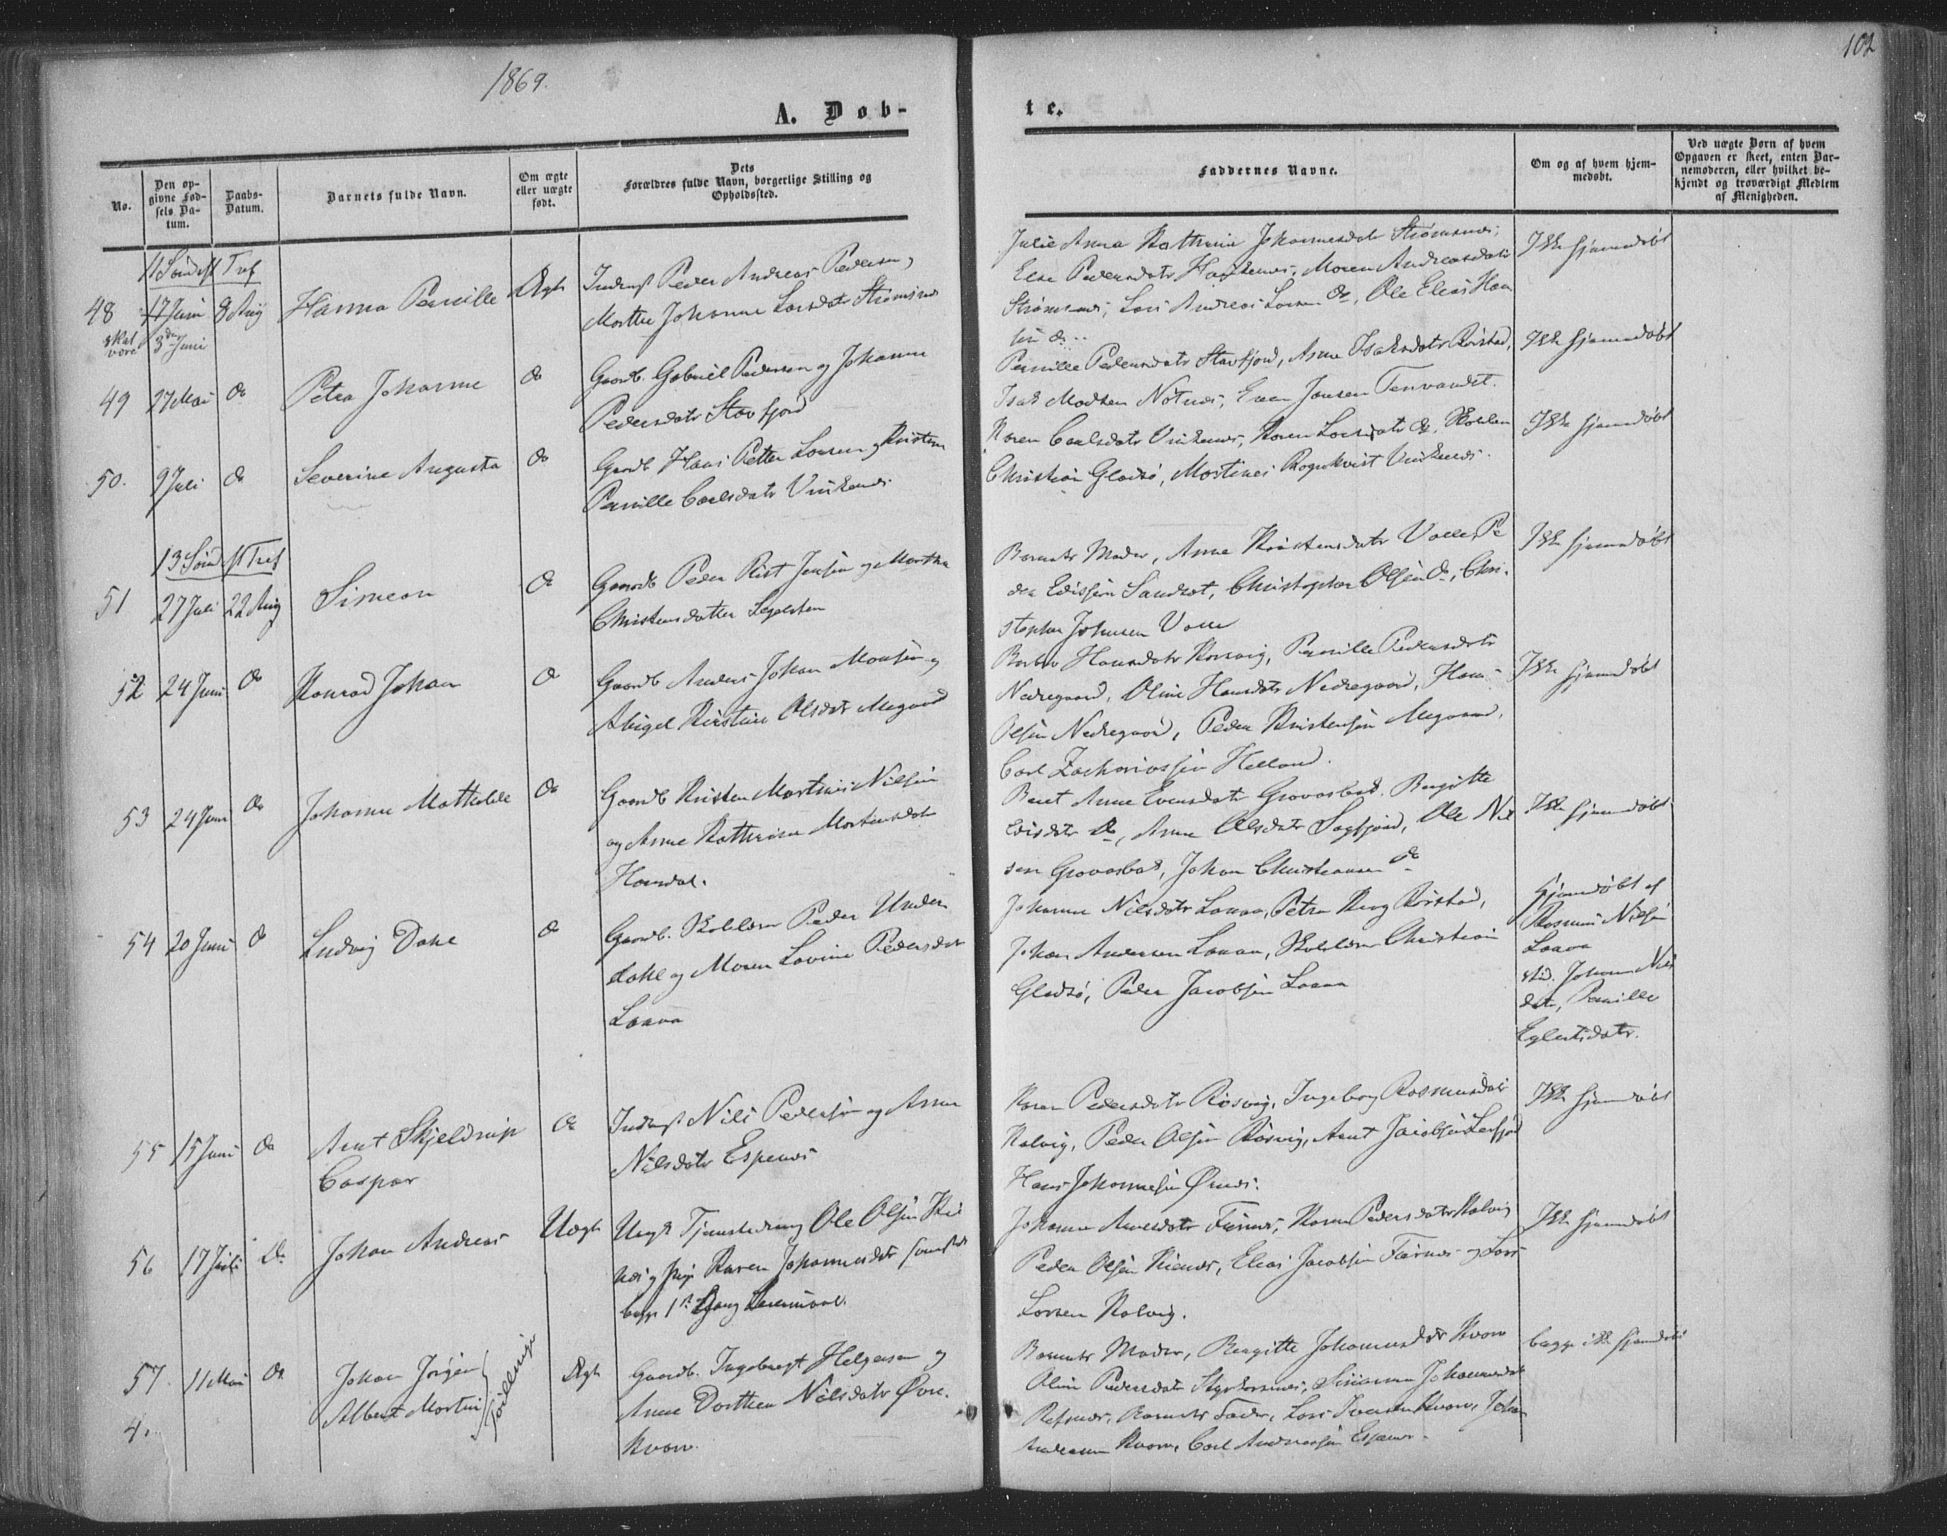 1869.
102
A. Døb-
te.
No.
Den op-
givne Fød-
sels Da-
tum.
Daabs-
Datum.
Barnets fulde Navn.
Om ægte
eller uægte
født.
Dets
Forældres fulde Navn, borgerlige Stilling og
Opholdssted.
Faddernes Navne.
Om og af hvem hjem-
medøbt.
Ved uægte Born af hvem
Opgaven er skeet, enten Bar-
nemoderen, eller hvilket be-
kjendt og troværdigt Medlem
af Menigheden.
11 Sønd. Tref
48
17 Juni
8 Aug
skal være 3die Juni
Hanna Pernille
Ægte
Inderst Peder Andreas Pedersen,
Marthe Johanne Larsdatr Strømsnes
Julie Anna Kathrine Johannesdatr Strømsnes,
Else Pedersdatr, Maren Andreasdatr
Strømsnes, Lars Andreas Larsen do, Ole Elias
Ikke hjemmedøbt
49
27 Mai
do
Petra Johanne
do
Gaardb. Gabriel Pedersen og Johanne
Pedersdatr Stavfjord
Pernille Pedersdatr Stavfjord, Anne Isaksdatr Rørstad,
Isak Madsen Notnæs, Even Jansen Tennvandet.
Ikke hjemmedøbt
50.
9 Juli
do
Severine Augusta
do
Gaardb Hans Petter Larsen og Kristine
Pernille Carlsdatr Vinkenes
Karen Carlsdatr Vinkenes, Karen Larsdatr do, Skolelær
Christian Gladsø, Martines Rognkvist Vinkenes.
Ikke hjemmedøbt
13 Sønd. Tref
51
27 Juli
22 Aug
Simeon
do
Gaardb Peder Kist Jensen og Martha
Christensdatter Segelsten
Barnets Moder, Anne Kristensdatr Valle, Pe
der Edisen Sandset, Christopher Olsen do, Chri-
stopher Johnsen Valle
Ikke hjemmedøbt
52
24 Juni
do
Konrad Johan
do
Gaardb Anders Johan Monsen og
Abigel Kirstine Olsdatr Megaard
Hansdatr Korsvig, Pernille Pedersdatr
Nedregaard, Oline Hansdatr Nedregaard, Hans
Olsen Nedregaard, Peder Kristensen Megaard,
Carl Zachariassen Helland.
Ikke hjemmedøbt
53
24 Juni
do
Johanne Mathilde
do
Gaardb Kristen Martines Nilsen
og Anne Kathrine Mortensdatr
Horndal.
Beret Anne Evensdatr Grovasbak. Birgitte
Edisdatr do, Anne Olsdatr Sagfjord, Ole Nil
sen Grovasbak, Johan Christiansen do
Ikke hjemmedøbt
54
20 Juni
do
Ludvig Dahl
do
Gaardb. Skolelærer Peder Under
dahl og Maren Lovine Pedersdatr
Laava
Johanne Nilsdatr Laava, Petra Krog Rørstad,
Johan Andersen Laava, Skolelærer Christian
Gladsø, Peder Jacobsen Laava
Hjemdøbt af
Rasmus Nilsen
Laava
Johanne Nils
datr, Pernille
Egbertsdatr.
55
15 Juni
do
Arnt Skjeldrup
Caspar
do
Inderst Nils Pedersen og Anne
Nilsdatr Espenes
Karen Pedersdatr Røsvig, Ingeborg Rasmusdatr
Kalvig, Peder Olsen Røsvig, Arnt Jacobsen Leirfjord
Hans Johannesen Ørnes.
Ikke hjemmedøbt
56
17 Juli
do
Johan Andreas
Uægte
Ungk Tjenestedreng Ole Olsen Kie
næs og Pige Karen Johannesdatr
begge 1ste Gang Leiermaal.
Johanne Arnesdatr Furnes, Karen Pedersdatr Kalvig
Peder Olsen Kienes, Elias Jacobsen Furnes og Lars
Larsen Kalvig.
Ikke hjemmedøbt
57.
4.
11 Mai
do
Johan Jørgen
Albert Martin
Tvillinger
Ægte
Gaardb. Ingebregt Helgesen og
Anne Dorthea Nilsdatr Øvre
Kvarv.
Barnets Moder, Birgitte Johannesdatr Kvarv
Oline Pedersdatr, Susanna Johannesdatr
Refsnes, Barnets Fader, Lars Iversen Kvarv, Johan
Andersen Kvarv, Carl Andreassen Espenes.
begge ikke hjemdøbt